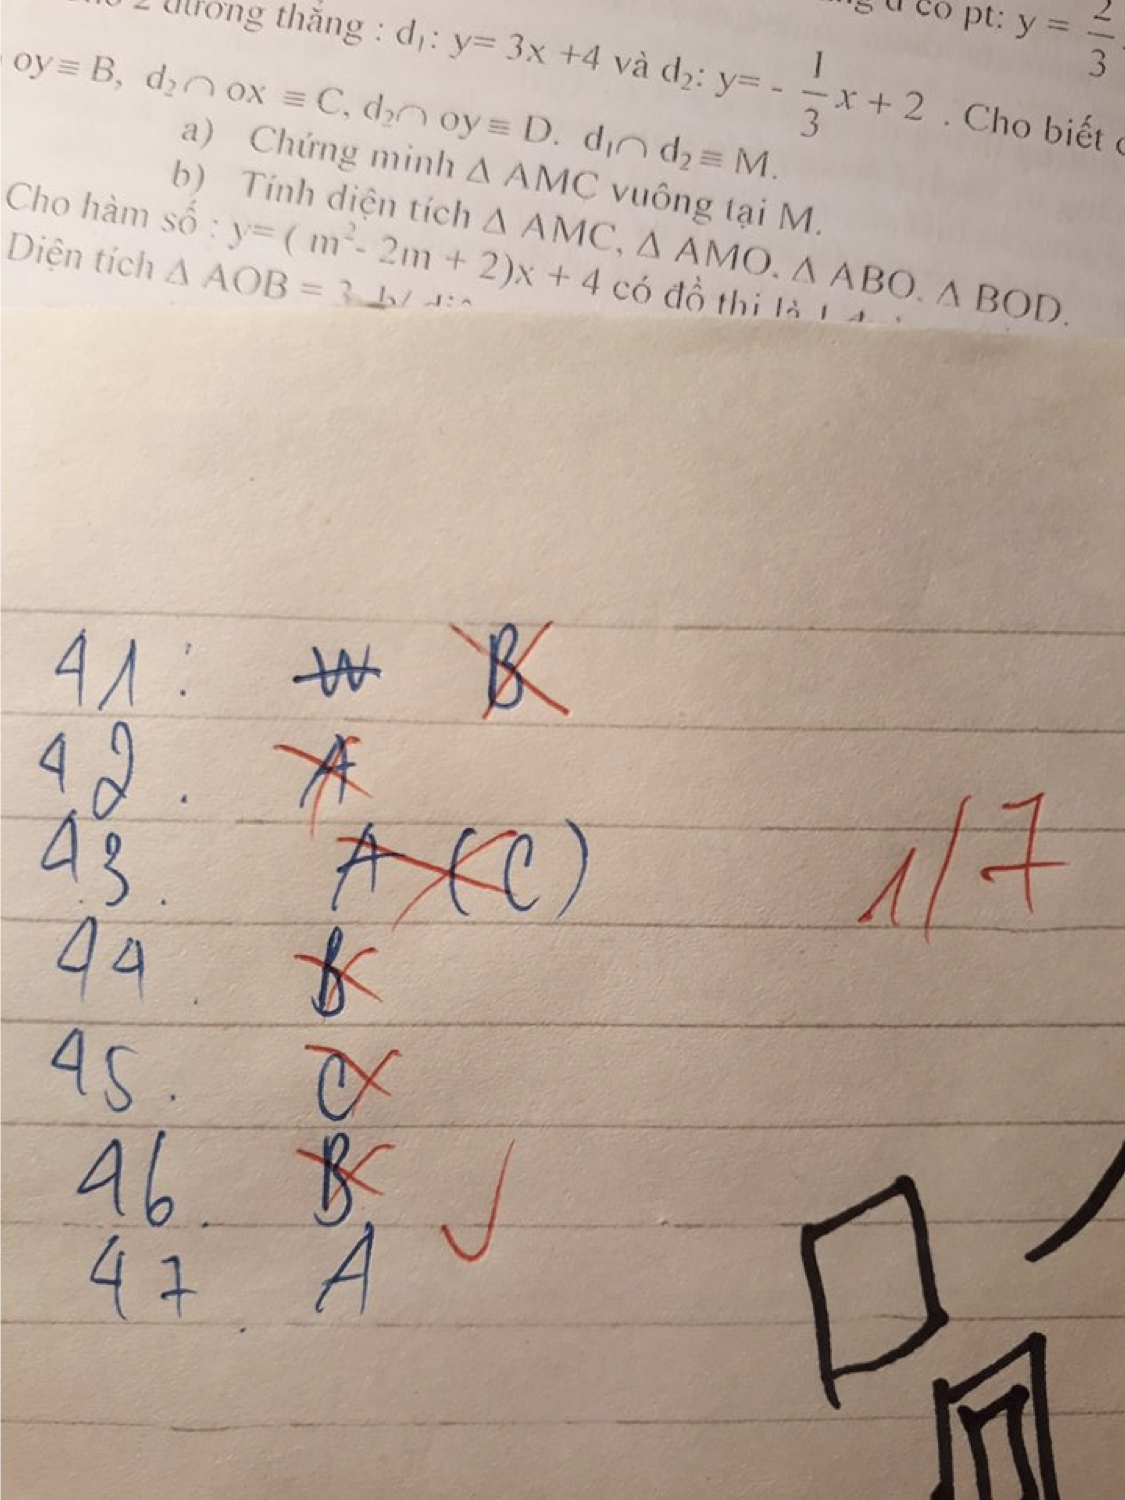 2 đường thẳng : d₁: y= 3x +4 và d₂: y= - 1/3 x + 2 . Cho biết
có pt: y = 2/3
oy≡ B, d₂∩ ox ≡ C, d₂∩ oy ≡ D. d₁∩ d₂ ≡ M.
a) Chứng minh Δ AMC vuông tại M.
b) Tính diện tích Δ AMC, Δ AMO. Δ ABO. Δ BOD.
Cho hàm số : y= ( m²- 2m + 2)x + 4 có đồ thị là 1
Diện tích Δ AOB = 3 b/
41: B
42. A
43. A (C)
44. B
45. C
46. B
47. A
1/7